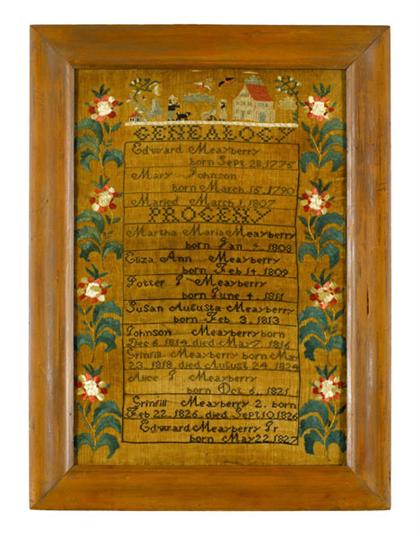 GENEALOGY
Edward Meayberry
born Sept. 28, 1775
Mary Johnson
born March 15, 1790
Maried March 1, 1807
PROGENY
Martha Maria Meayberry
born Jan 2, 1808
Eliza Ann Meayberry
born Feb 14, 1809
Potter T Meayberry
born June 4, 1811
Susan Augusta Meayberry
born Feb 3, 1813
Johnson Meayberry born
Dec 6, 1814, died May 7, 1816
Meayberry born May
23, 1818, died August 24, 1824
Alice T. Meayberry
born Oct 6, 1821
Meayberry 2. born
Feb 22, 1826, died Sept 10, 1826
Edward Meayberry Jr
born May 22, 1827